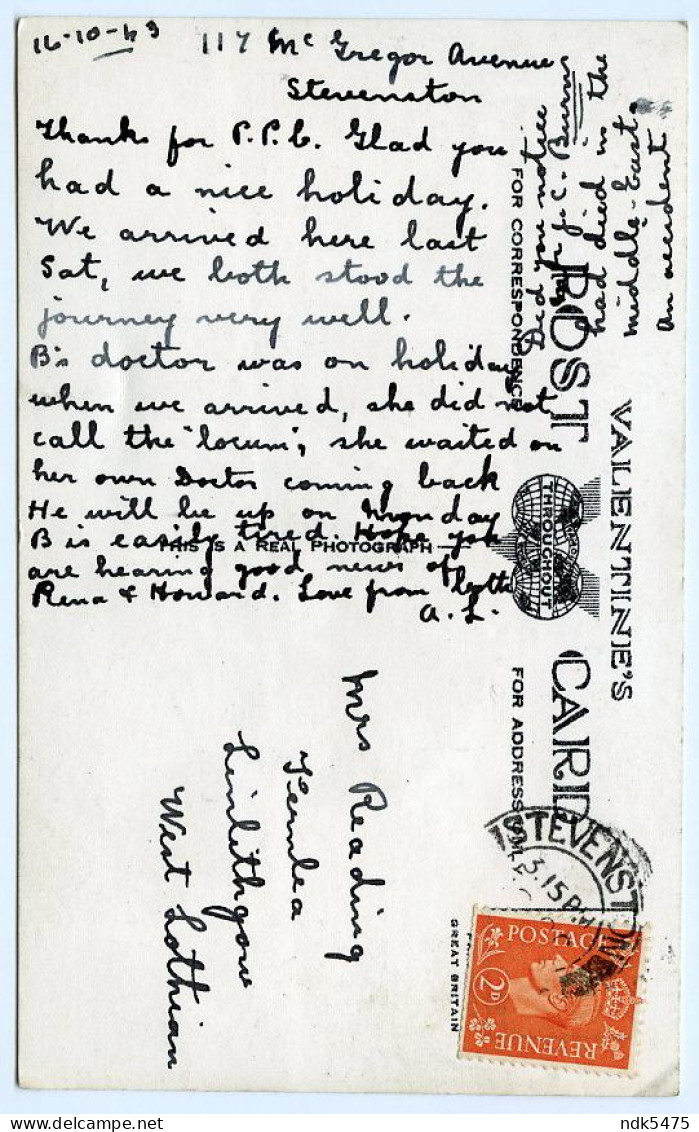 16-10-43
117 McGregor Avenue
Stevenston
Thanks for P.P.C. Glad you
had a nice holiday.
We arrived here last
Sat, we both stood the
journey very well.
B's doctor was on holiday
when we arrived, she did not
call the "locum", she waited on
her own Doctor coming back
He will be up on Monday
B is easily tired. Hope you
are hearing good news of
Rena & Howard. Love from both
A.L.
Did you notice
J. C. Burns
had died in the
middle-East.
An accident
VALENTINE'S
POST CARD
FOR CORRESPONDENCE
THROUGHOUT
THIS IS A REAL PHOTOGRAPH
FOR ADDRESS ONLY
GREAT BRITAIN
Mrs Reading
Fernlea
Linlithgow
West Lothian
STEVENSTON
3.15 PM
POSTAGE
2D
REVENUE
ndk5475